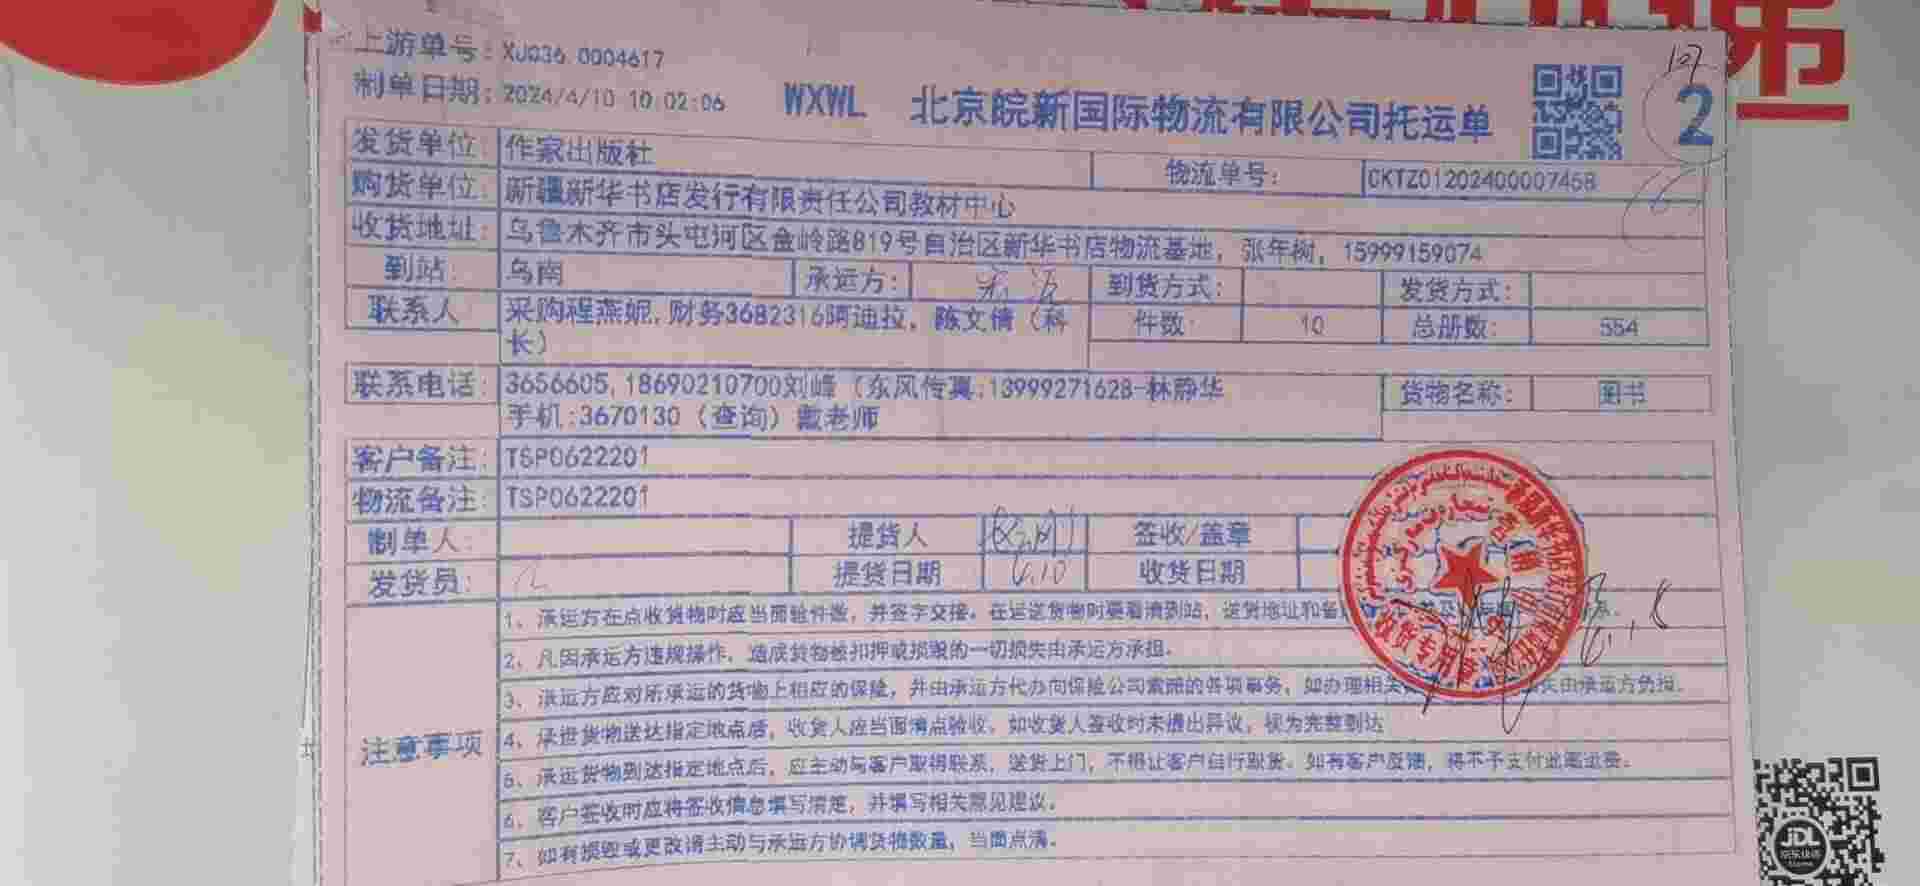 上游单号：XJ036 0004617
制单日期：2024/4/10 10:02:06
WXWL 北京皖新国际物流有限公司托运单
107
2
发货单位：作家出版社
物流单号：CKTZ01202400007458
购货单位：新疆新华书店发行有限责任公司教材中心
收货地址：乌鲁木齐市头屯河区金岭路819号自治区新华书店物流基地，张年树，15999159074
到站：乌南 承运方： 到货方式： 发货方式：
联系人 采购程燕妮，财务3682316阿迪拉，陈文倩（科长）
件数：10 总册数：554
联系电话：3656605,18690210700刘峰（东风传真:13999271628-林静华
手机:3670130（查询）戴老师
货物名称：图书
客户备注：TSP0622201
物流备注：TSP0622201
制单人： 提货人 签收/盖章
发货员： 提货日期 6.10 收货日期
注意事项
1、承运方在点收货物时应当面验件数，并签字交接。在运送货物时要看清到站，送货地址和备
2、凡因承运方违规操作，造成货物被扣押或损毁的一切损失由承运方承担。
3、承运方应对所承运的货物上相应的保险，并由承运方代办向保险公司索赔的各项事务，如办理相关 由承运方负担。
4、承运货物送达指定地点后，收货人应当面清点验收。如收货人签收时未提出异议，视为完整到达
5、承运货物到达指定地点后，应主动与客户取得联系，送货上门，不得让客户自行取货。如有客户反馈，将不予支付此笔运费。
6、客户签收时应将签收信息填写清楚，并填写相关意见建议。
7、如有损毁或更改请主动与承运方协调货物数量，当面点清。
收货专用章
JDL
京东快递